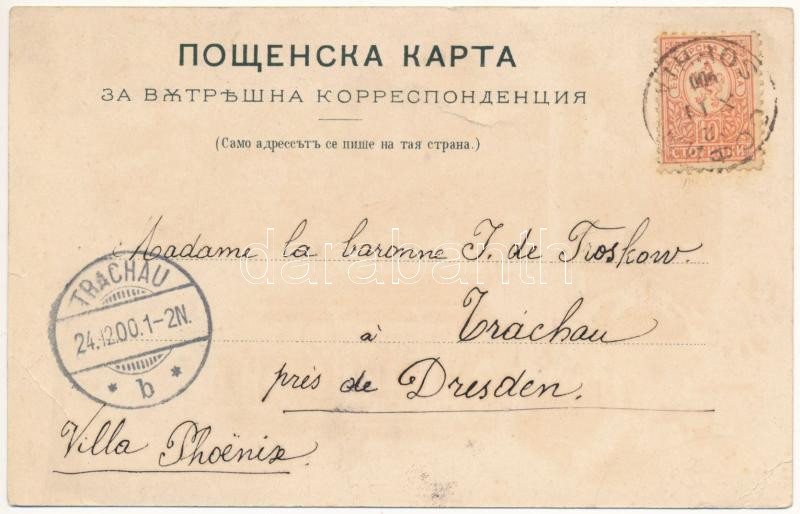 ПОЩЕНСКА КАРТА
ЗА ВѪТРѢШНА КОРРЕСПОНДЕНЦИЯ
(Само адрессътъ се пише на тая страна.)
10
Madame la baronne J. de Troskow.
TRACHAU
24.12.00.1-2N.
* b *
à Tráchau
près de Dresden.
Villa Phoënix.
darabanth